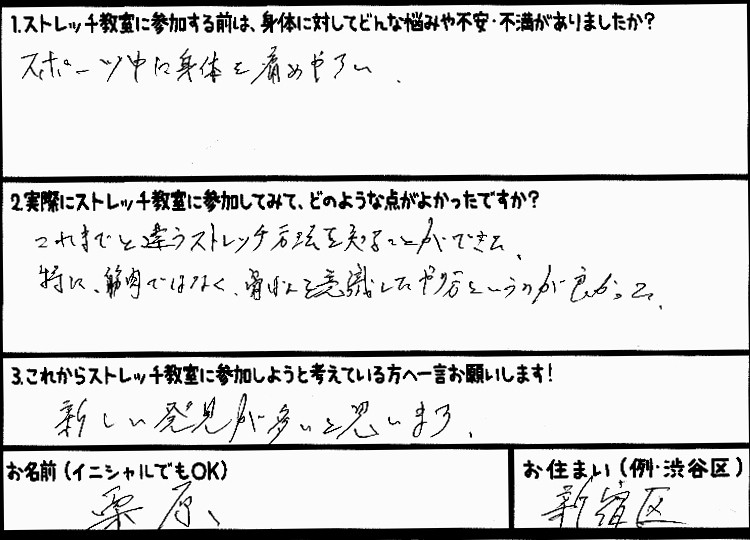 1.ストレッチ教室に参加する前は、身体に対してどんな悩みや不安・不満がありましたか?
スポーツ中に身体を痛めやすい.
2.実際にストレッチ教室に参加してみて、どのような点がよかったですか?
これまでと違うストレッチ方法を知ることができた、
特に、筋肉ではなく、骨などを意識したやり方というのが良かった、
3.これからストレッチ教室に参加しようと考えている方へ一言お願いします!
新しい発見が多いと思います、
お名前(イニシャルでもOK)
お住まい(例・渋谷区)
栗原、
新宿区